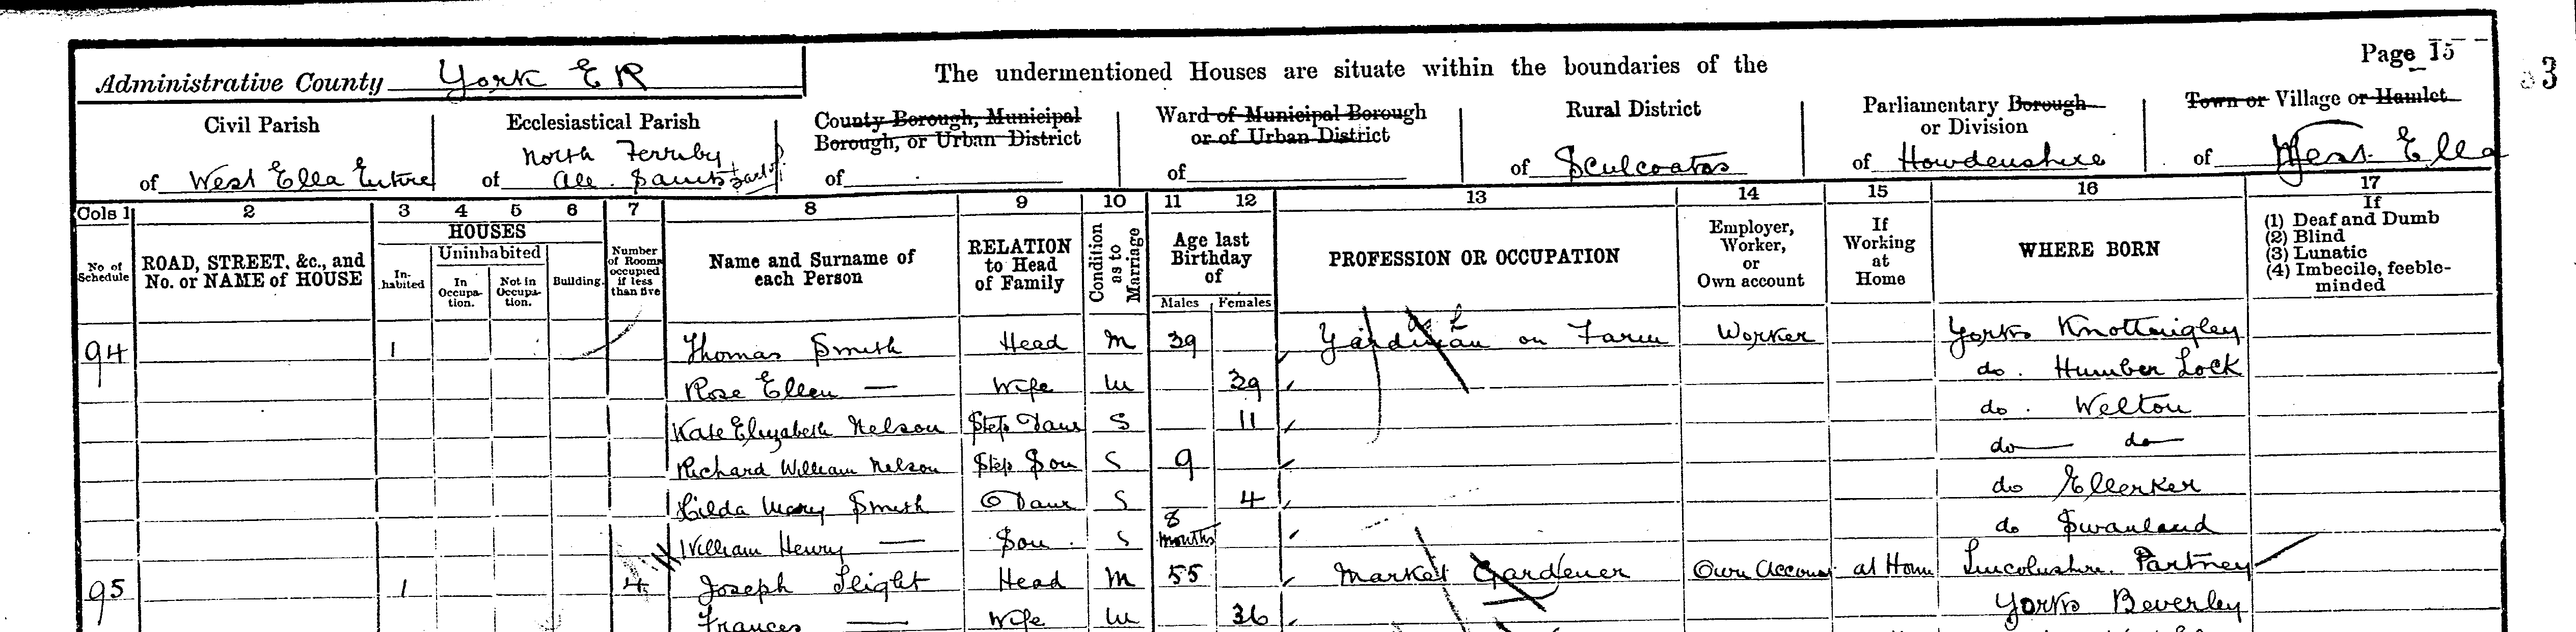 Page 15
3
Administrative County York E R
The undermentioned Houses are situate within the boundaries of the
Civil Parish
of West Ella Entire
Ecclesiastical Parish
North Ferriby
of All Saints part of
County Borough, Municipal
Borough, or Urban District
of
Ward of Municipal Borough
or of Urban District
of
Rural District
of Sculcoates
Parliamentary Borough
or Division
of Howdenshire
Town or Village or Hamlet
of West Ella
Cols 1 2 3 4 5 6 7 8 9 10 11 12 13 14 15 16 17
No. of
Schedule
ROAD, STREET, &c., and
No. or NAME of HOUSE
HOUSES
In-
habited
Uninhabited
In
Occupa-
tion.
Not in
Occupa-
tion.
Building.
Number
of Rooms
occupied
if less
than five
Name and Surname of
each Person
RELATION
to Head
of Family
Condition
as to
Marriage
Age last
Birthday
of
Males Females
PROFESSION OR OCCUPATION
Employer,
Worker,
or
Own account
If
Working
at
Home
WHERE BORN
If
(1) Deaf and Dumb
(2) Blind
(3) Lunatic
(4) Imbecile, feeble-
minded
94 1 Thomas Smith Head M 39 Yardman on Farm Worker Yorks Knottingley
Rose Ellen — Wife M 39 do. Humber Lock
Kate Elizabeth Nelson Step Daur S 11 do. Welton
Richard William Nelson Step Son S 9 do — do —
Hilda Mary Smith Daur S 4 do Ellerker
William Henry — Son S 8 months do Swanland
95 1 4 Joseph Slight Head M 55 Market Gardener Own Account at Home Lincolnshire. Partney
Frances — Wife M 36 Yorks Beverley